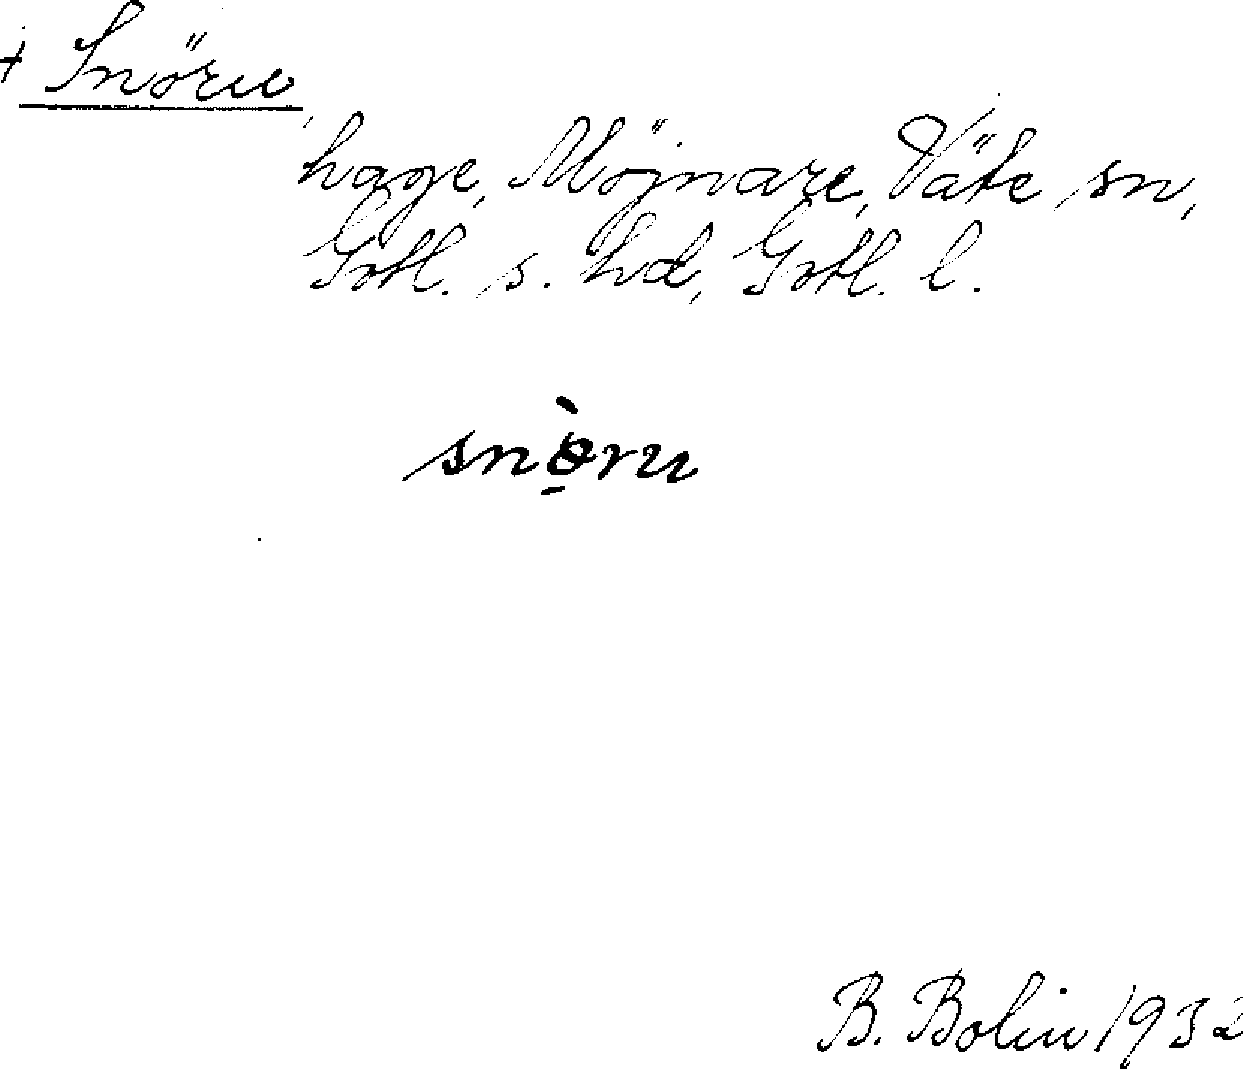 + Snöru
hage, Möjnare, Väte sn,
Gotl. s. hd, Gotl. l.
snö̀ru
B. Bolin 1932